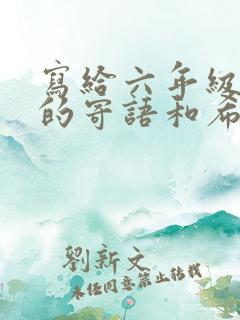 寫給六年級
的寄語和希
劉新文
未经同意禁止转载